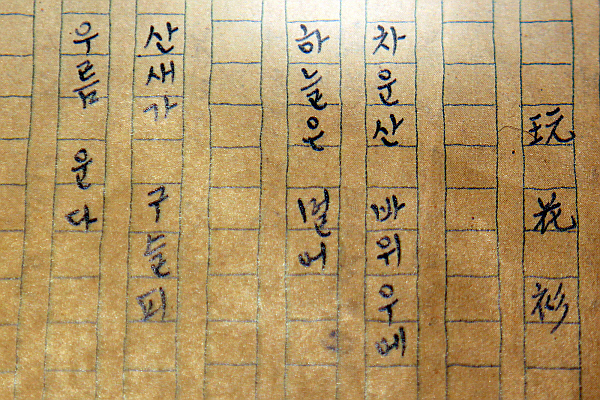 玩花衫
차운산 바위우에
하늘은 멀어
산새가 구슬피
우름 운다